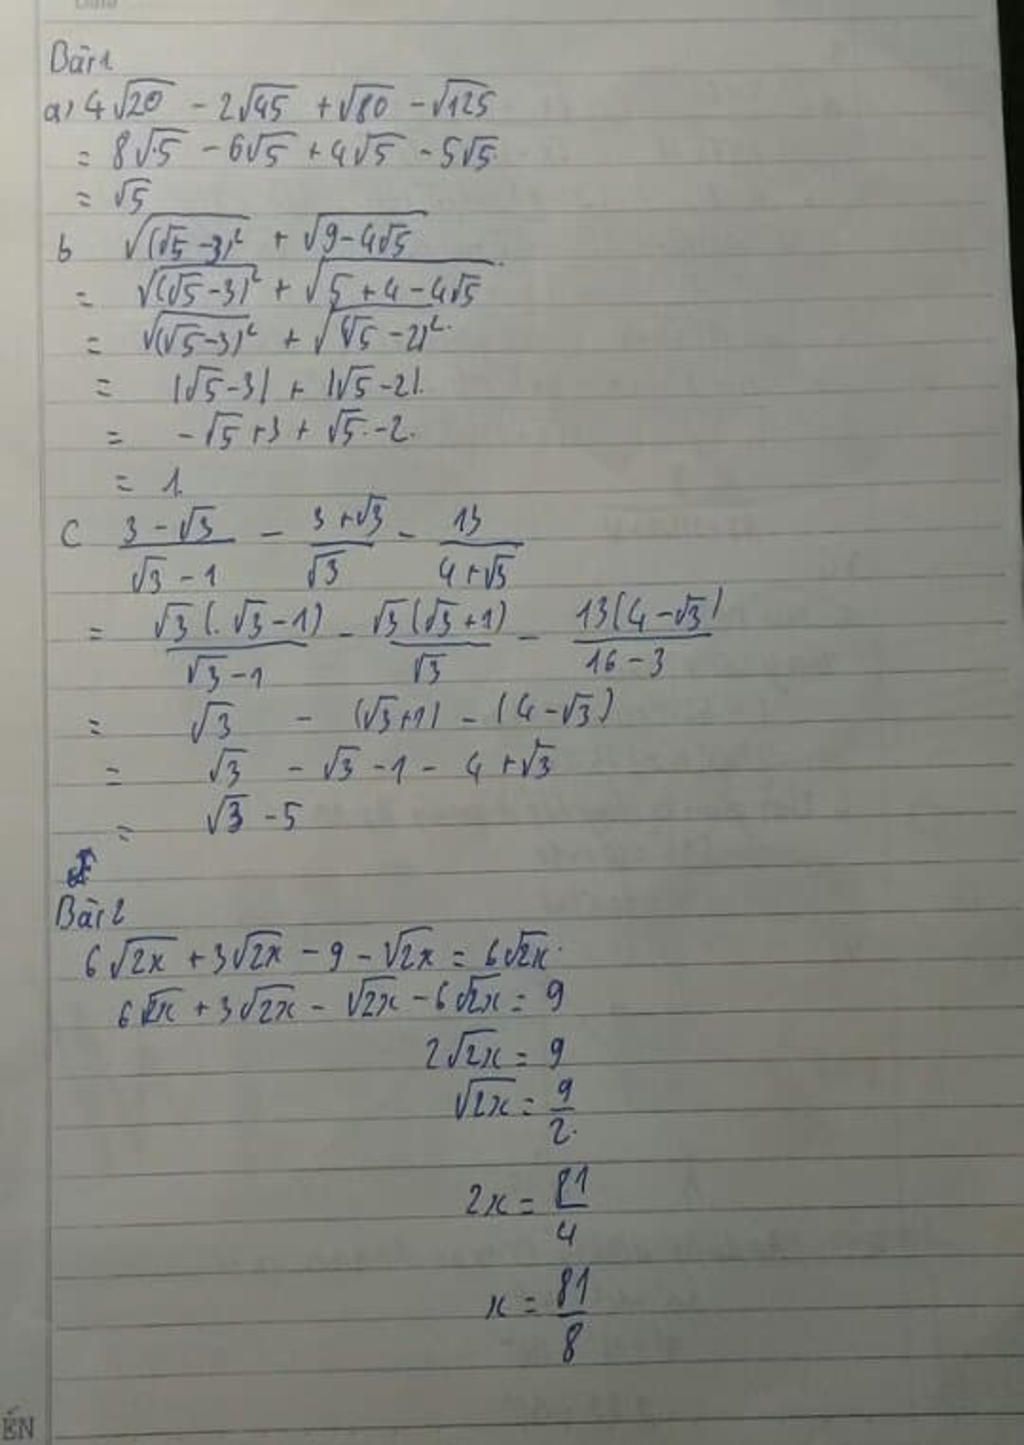 Bài 1
a) 4√20 - 2√45 + √80 - √125
= 8√5 - 6√5 + 4√5 - 5√5
= √5
b √((√5 - 3)² + √(9 - 4√5)
= √((√5 - 3)² + √(5 + 4 - 4√5)
= √((√5 - 3)² + √((√5 - 2)²
= |√5 - 3| + |√5 - 2|.
= -√5 + 3 + √5 - 2.
= 1.
C (3 - √3)/(√3 - 1) - (3 + √3)/√3 - 13/(4 + √3)
= √3(√3 - 1)/(√3 - 1) - √3(√3 + 1)/√3 - 13(4 - √3)/(16 - 3)
= √3 - (√3 + 1) - (4 - √3)
= √3 - √3 - 1 - 4 + √3
= √3 - 5
Bài 2
6√2x + 3√2x - 9 - √2x = 6√2x.
6√2x + 3√2x - √2x - 6√2x = 9
2√2x = 9
√2x = 9/2.
2x = 81/4
x = 81/8
ẾN